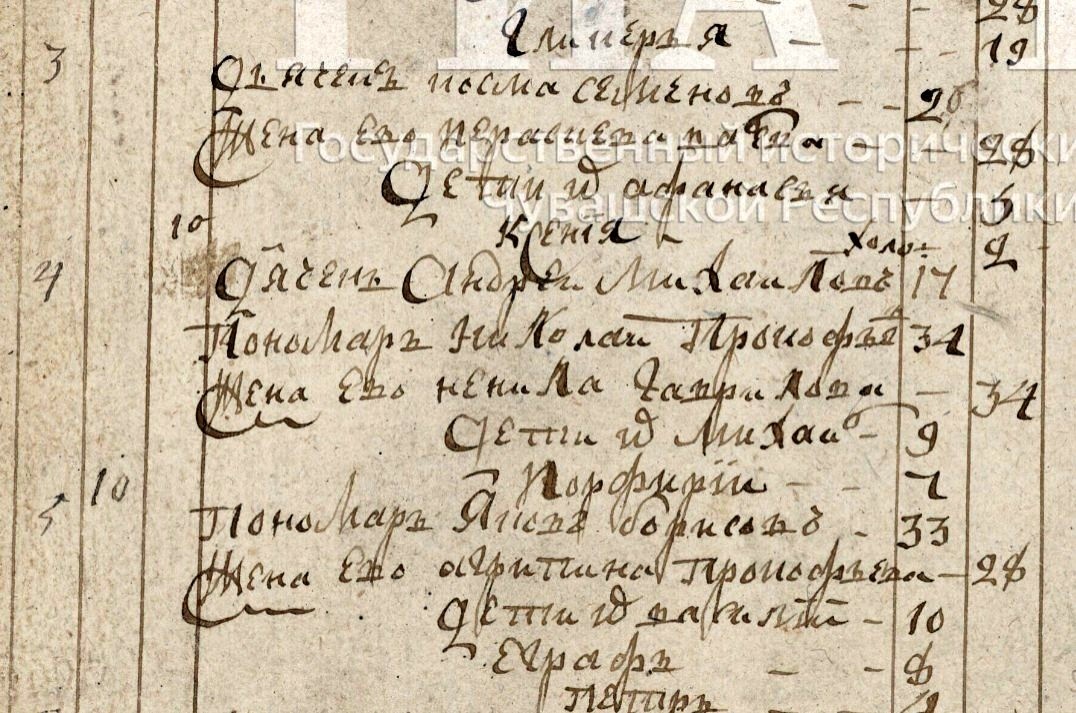 28
Гликерья 19
3
Дьячекъ Косма Семеновъ 26
Жена Ево Парасковья 28
Дети их Афанасьи 5
10
Ксенія 2
холо:
4 Дячекъ Андреи Михаиловъ 17
Пономаръ Николаи Прокофьевъ 34
Жена Ево Ненила Гаврилова 34
Дети их Михаи 9
10 Порфирій 7
5 Пономаръ Яковъ борисовъ 33
Жена Ево агрипина Прокофьева 28
Дети их василій 10
Еграфъ 8
Петръ
Государственный исторически
Чувашской Республики